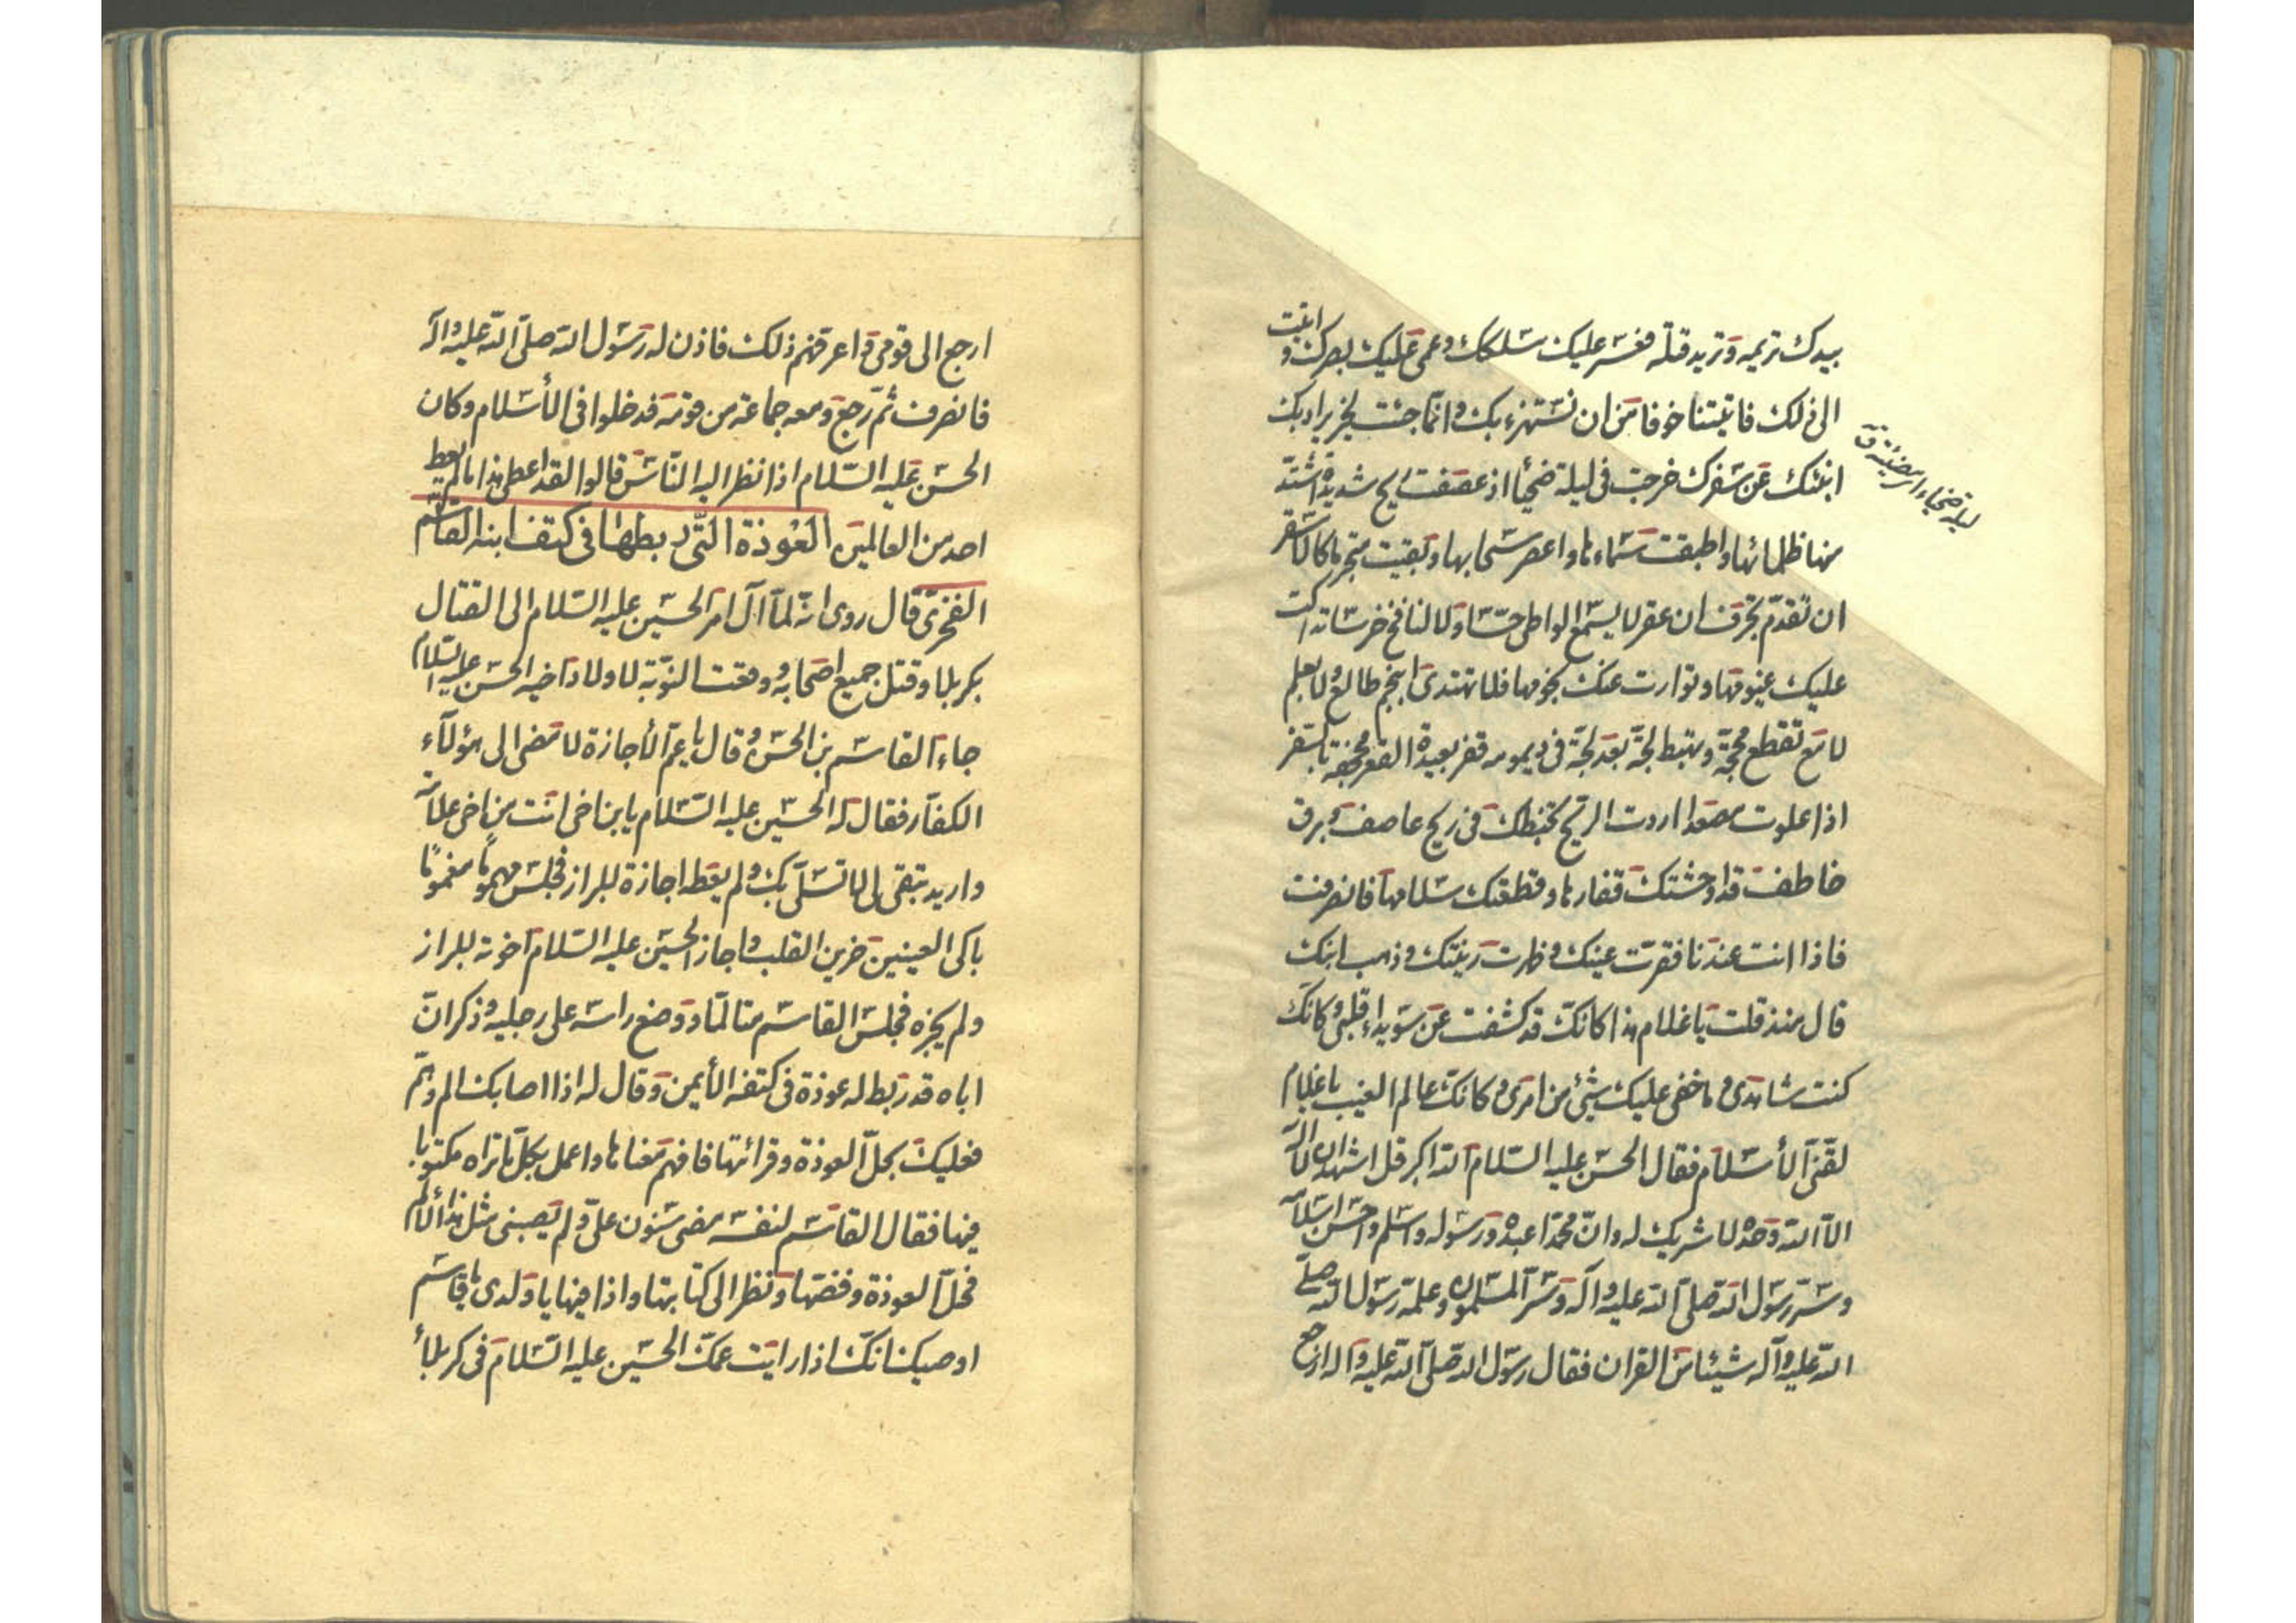 بيدك تريمه وتريد قتله فعسر عليك مسلكك وعمى عليك بصرك وابيت
الى ذلك فاتيتنا خوفا من ان نستهزء بك وانما جئت لخير يراد بك
انبئك عن سفرك خرجت فى ليلة ضحيا اذ عصفت ريح شديدة اشتد
منها ظلمائها واطبقت سماءها واعصر سحابها وبقيت متجرما كالاشقر
ان تقدم نحر فان عقر لا يسمع لواطى حسا ولا لنافخ خرسا تداكت
عليك غيومها وتوارت عنك نجومها فلا تهتدى بنجم طالع ولا بعلم
لامع تقطع محجة وتهبط لجة بعد لجة فى ديمومه قفر بعيدة القعر مجحفة بالسفر
اذا علوت مصعدا اردت الريح تخبطك فى ريح عاصف وبرق
خاطف قد اوحشتك قفارها وقطعتك سلامها فانصرفت
فاذا انت عندنا فقرت عينك وظهرت رينتك وذهب انينك
قال منذ قلت يا غلام هذا كانك قد كشفت عن سويداء قلبى وكانك
كنت شاهدى وما خفى عليك شيئ من امرى وكانك عالم الغيب يا غلام
لقنى الأسلام فقال الحسن عليه السلام الله اكبر قل اشهد ان لا اله
الا الله وحده لا شريك له وان محمدا عبده ورسوله واسلم واحسن اسلامه
وسر رسول الله صلى الله عليه وآله وسر المسلمون وعلمه رسول الله صلى
الله عليه وآله شيئا من القران فقال رسول الله صلى الله عليه وآله ارجع
ليلة ضحياء اى مضيئة ق
ارجع الى قومى واعرفهم ذلك فاذن له رسول الله صلى الله عليه وآله
فانصرف ثم رجع ومعه جماعة من قومه فدخلوا فى الأسلام وكان
الحسن عليه السلام اذا نظر اليه الناس قالوا لقد اعطى هذا ما لم يعط
احد من العالمين العوذة التى ربطها فى كتف ابنه القاسم
الفخرى قال روى انه لما آل امر الحسين عليه السلام الى القتال
بكربلا وقتل جميع اصحابه ووقعت النوبة لاولاد اخيه الحسن عليه السلام
جاء القاسم بن الحسن وقال يا عم الأجازة لا مضى الى هؤلآء
الكفار فقال له الحسين عليه السلام يا بن اخى انت من اخى علامة
واريد تبقى لى لاتسلى بك ولم يعطه اجازة للبراز فجلس مهموما مغموما
باكى العينين حزين القلب واجاز الحسين عليه السلام اخوته للبراز
ولم يجزه فجلس القاسم متالما ووضع راسه على رجليه وذكر ان
اباه قد ربط له عوذة فى كتفه الأيمن وقال له اذا اصابك الم وهم
فعليك بحل العوذة وقرائتها فافهم معناها واعمل بكل ما تراه مكتوبا
فيها فقال القاسم لنفسه مضى سنون على ولم يصبنى مثل هذا الألم
فحل العوذة وفضها ونظر الى كتابتها واذا فيها يا ولدى يا قاسم
اوصيك انك اذا رايت عمك الحسين عليه السلام فى كربلأ